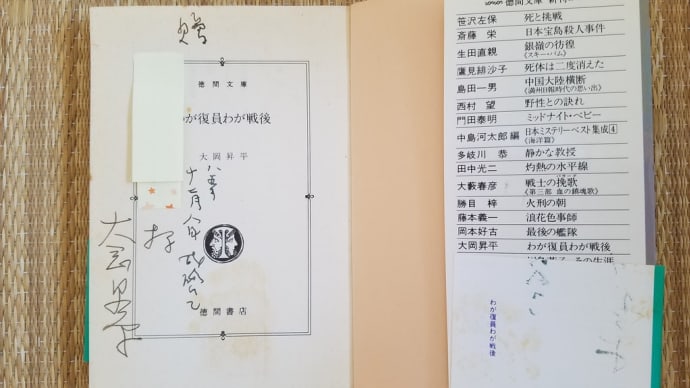 贈
徳間文庫
わが復員わが戦後
大岡昇平
大岡昇平
徳間書店
徳間文庫 新刊
笹沢左保 死と挑戦
斎藤 栄 日本宝島殺人事件
生田直親 銀嶺の彷徨
《スキー・バム》
鷹見緋沙子 死体は二度消えた
島田一男 中国大陸横断
《満州日報時代の思い出》
西村 望 野性との訣れ
門田泰明 ミッドナイト・ベビー
中島河太郎 編 日本ミステリーベスト集成4
《海洋篇》
多岐川 恭 静かな教授
田中光二 灼熱の水平線
大藪春彦 戦士の挽歌
《第三部 血の鎮魂歌》
勝目 梓 火刑の朝
藤本義一 浪花色事師
岡本好古 最後の艦隊
大岡昇平 わが復員わが戦後
わが復員わが戦後